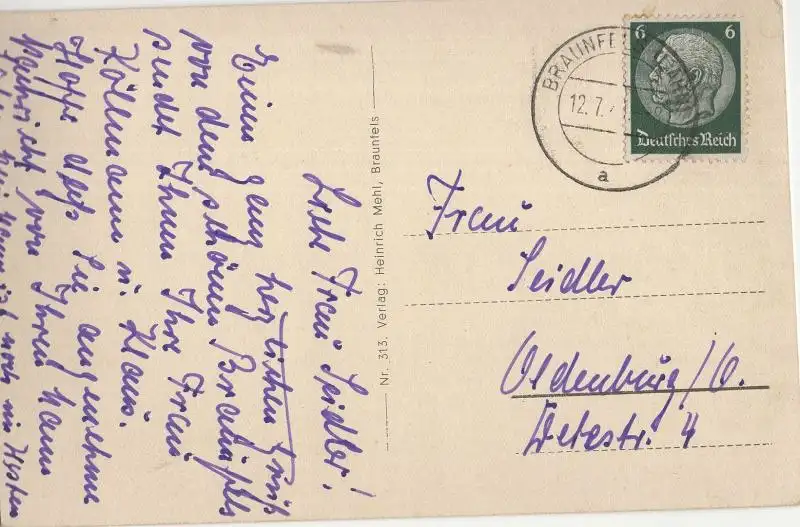 Liebe Frau Seidler!
Einen ganz herzlichen Gruß
von dem schönen Braunfels
sendet Ihnen Ihre Frau
Köllmann u. Klaus.
Hoffe daß Sie angenehme
Nachricht von Ihrem Mann
noch im Westen
Nr. 313. Verlag: Heinrich Mehl, Braunfels
BRAUNFELS
12.7.
a
6 6
Deutsches Reich
Frau
Seidler
Oldenburg/O.
4